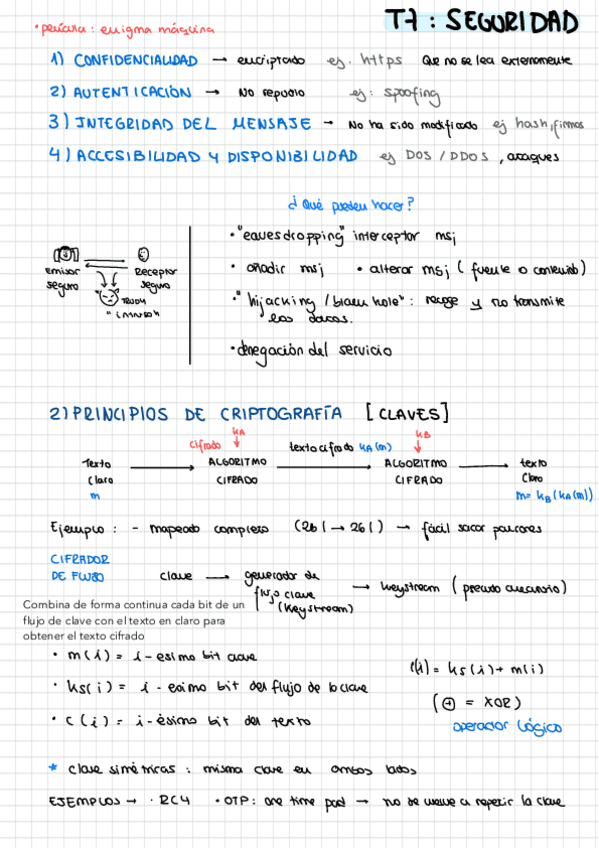 T7 : SEGURIDAD
• película : enigma máquina
1) CONFIDENCIALIDAD → encriptado ej. https Que no se lea externamente
2) AUTENTICACIÓN → No repudio ej: spoofing
3) INTEGRIDAD DEL MENSAJE → No ha sido modificado ej hash, firmas
4) ACCESIBILIDAD Y DISPONIBILIDAD ej DOS / DDOS , ataques
¿Qué pueden hacer?
• "eavesdropping" interceptor msj
• añadir msj • alterar msj ( fuente o contenido)
• "hijacking / black hole" : recoge y no transmite
los datos.
• denegación del servicio
Emisor
seguro
Receptor
seguro
TRUDY
"intruso"
2) PRINCIPIOS DE CRIPTOGRAFÍA [CLAVES]
cifrado KA
texto cifrado KA(m)
KB
Texto
Claro
m
ALGORITMO
CIFRADO
ALGORITMO
CIFRADO
texto
Claro
m= KB(KA(m))
Ejemplo : - mapeado completo (26! → 26!) → fácil sacar patrones
CIFRADOR
DE FLUJO
clave → generador de
flujo clave
(Keystream)
→ Keystream ( pseudo aleatorio)
Combina de forma continua cada bit de un
flujo de clave con el texto en claro para
obtener el texto cifrado
• m(i) = i - esimo bit clave
• ks(i) = i - esimo bit del flujo de la clave
• c(i) = i - ésimo bit del texto
c(i) = ks(i) + m(i)
(⊕ = XOR)
operador lógico
* clave simétricas : misma clave en ambos lados
EJEMPLOS → • RC4 • OTP : one time pad → no se vuelve a repetir la clave